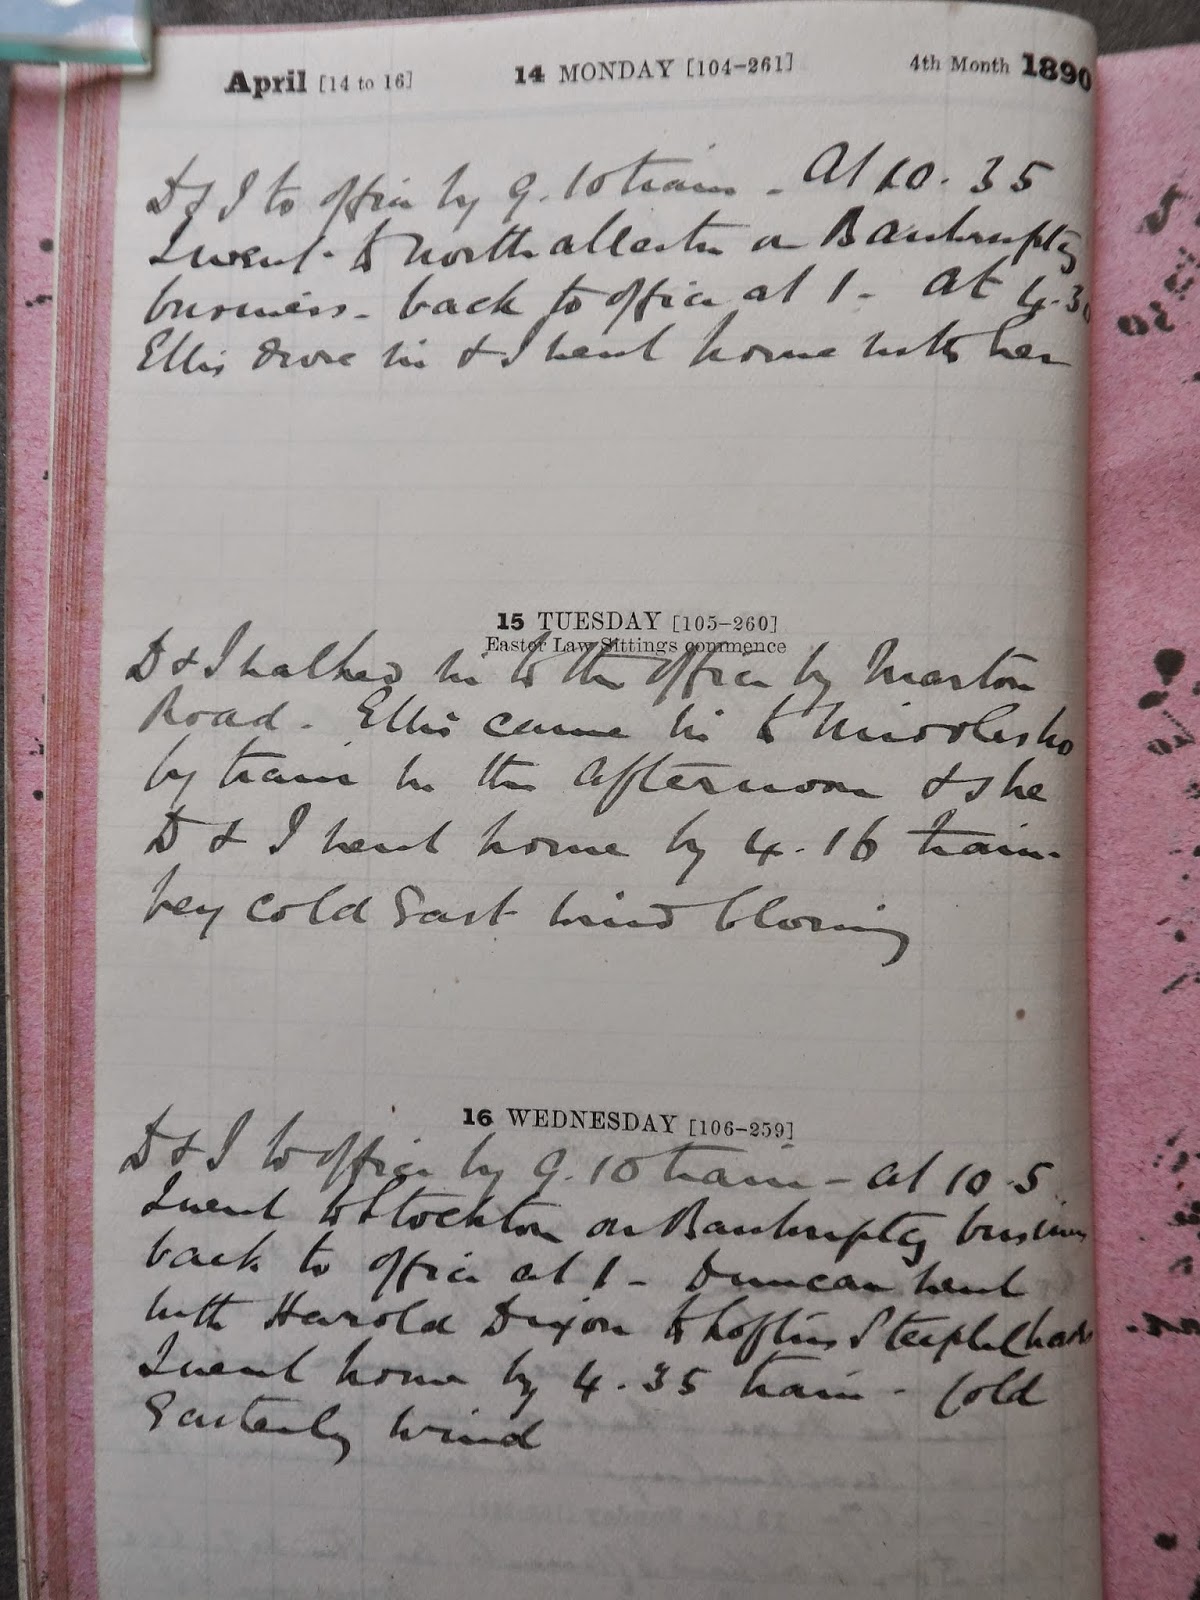 April [14 to 16] 14 MONDAY [104-261] 4th Month 1890
D & I to office by 9.10 train - At 10.35
I went to Northallerton on Bankruptcy
business - back to office at 1 - At 4.30
Ellis drove in & I went home with her
15 TUESDAY [105-260]
Easter Law Sittings commence
D & I walked in to the office by Marton
Road - Ellis came in to Middlesbo
by train in the afternoon & she
D & I went home by 4.16 train -
very cold East wind blowing
16 WEDNESDAY [106-259]
D & I to office by 9.10 train - at 10.5
I went to Stockton on Bankruptcy business
back to office at 1 - Duncan went
with Harold Dixon to Loftus Steeplechase
I went home by 4.35 train - Cold
Easterly wind